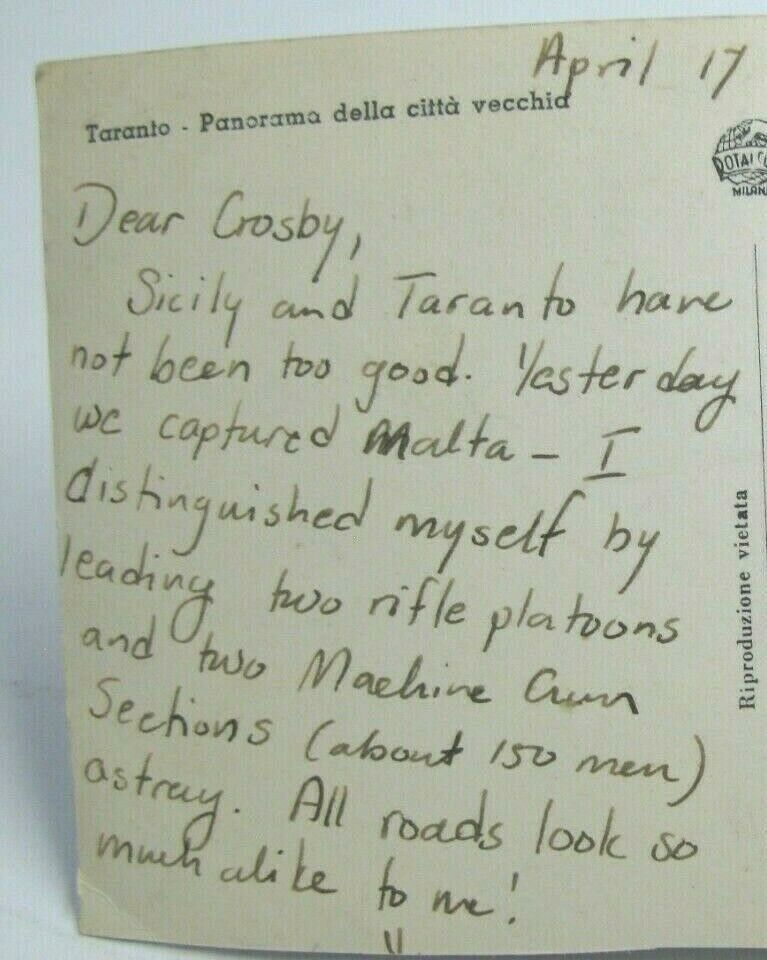 April 17
Taranto - Panorama della città vecchia
MILAN
Dear Crosby,
Sicily and Taranto have
not been too good. Yesterday
we captured Malta - I
distinguished myself by
leading two rifle platoons
and two Machine Gun
Sections (about 150 men)
astray. All roads look so
much alike to me!
Riproduzione vietata